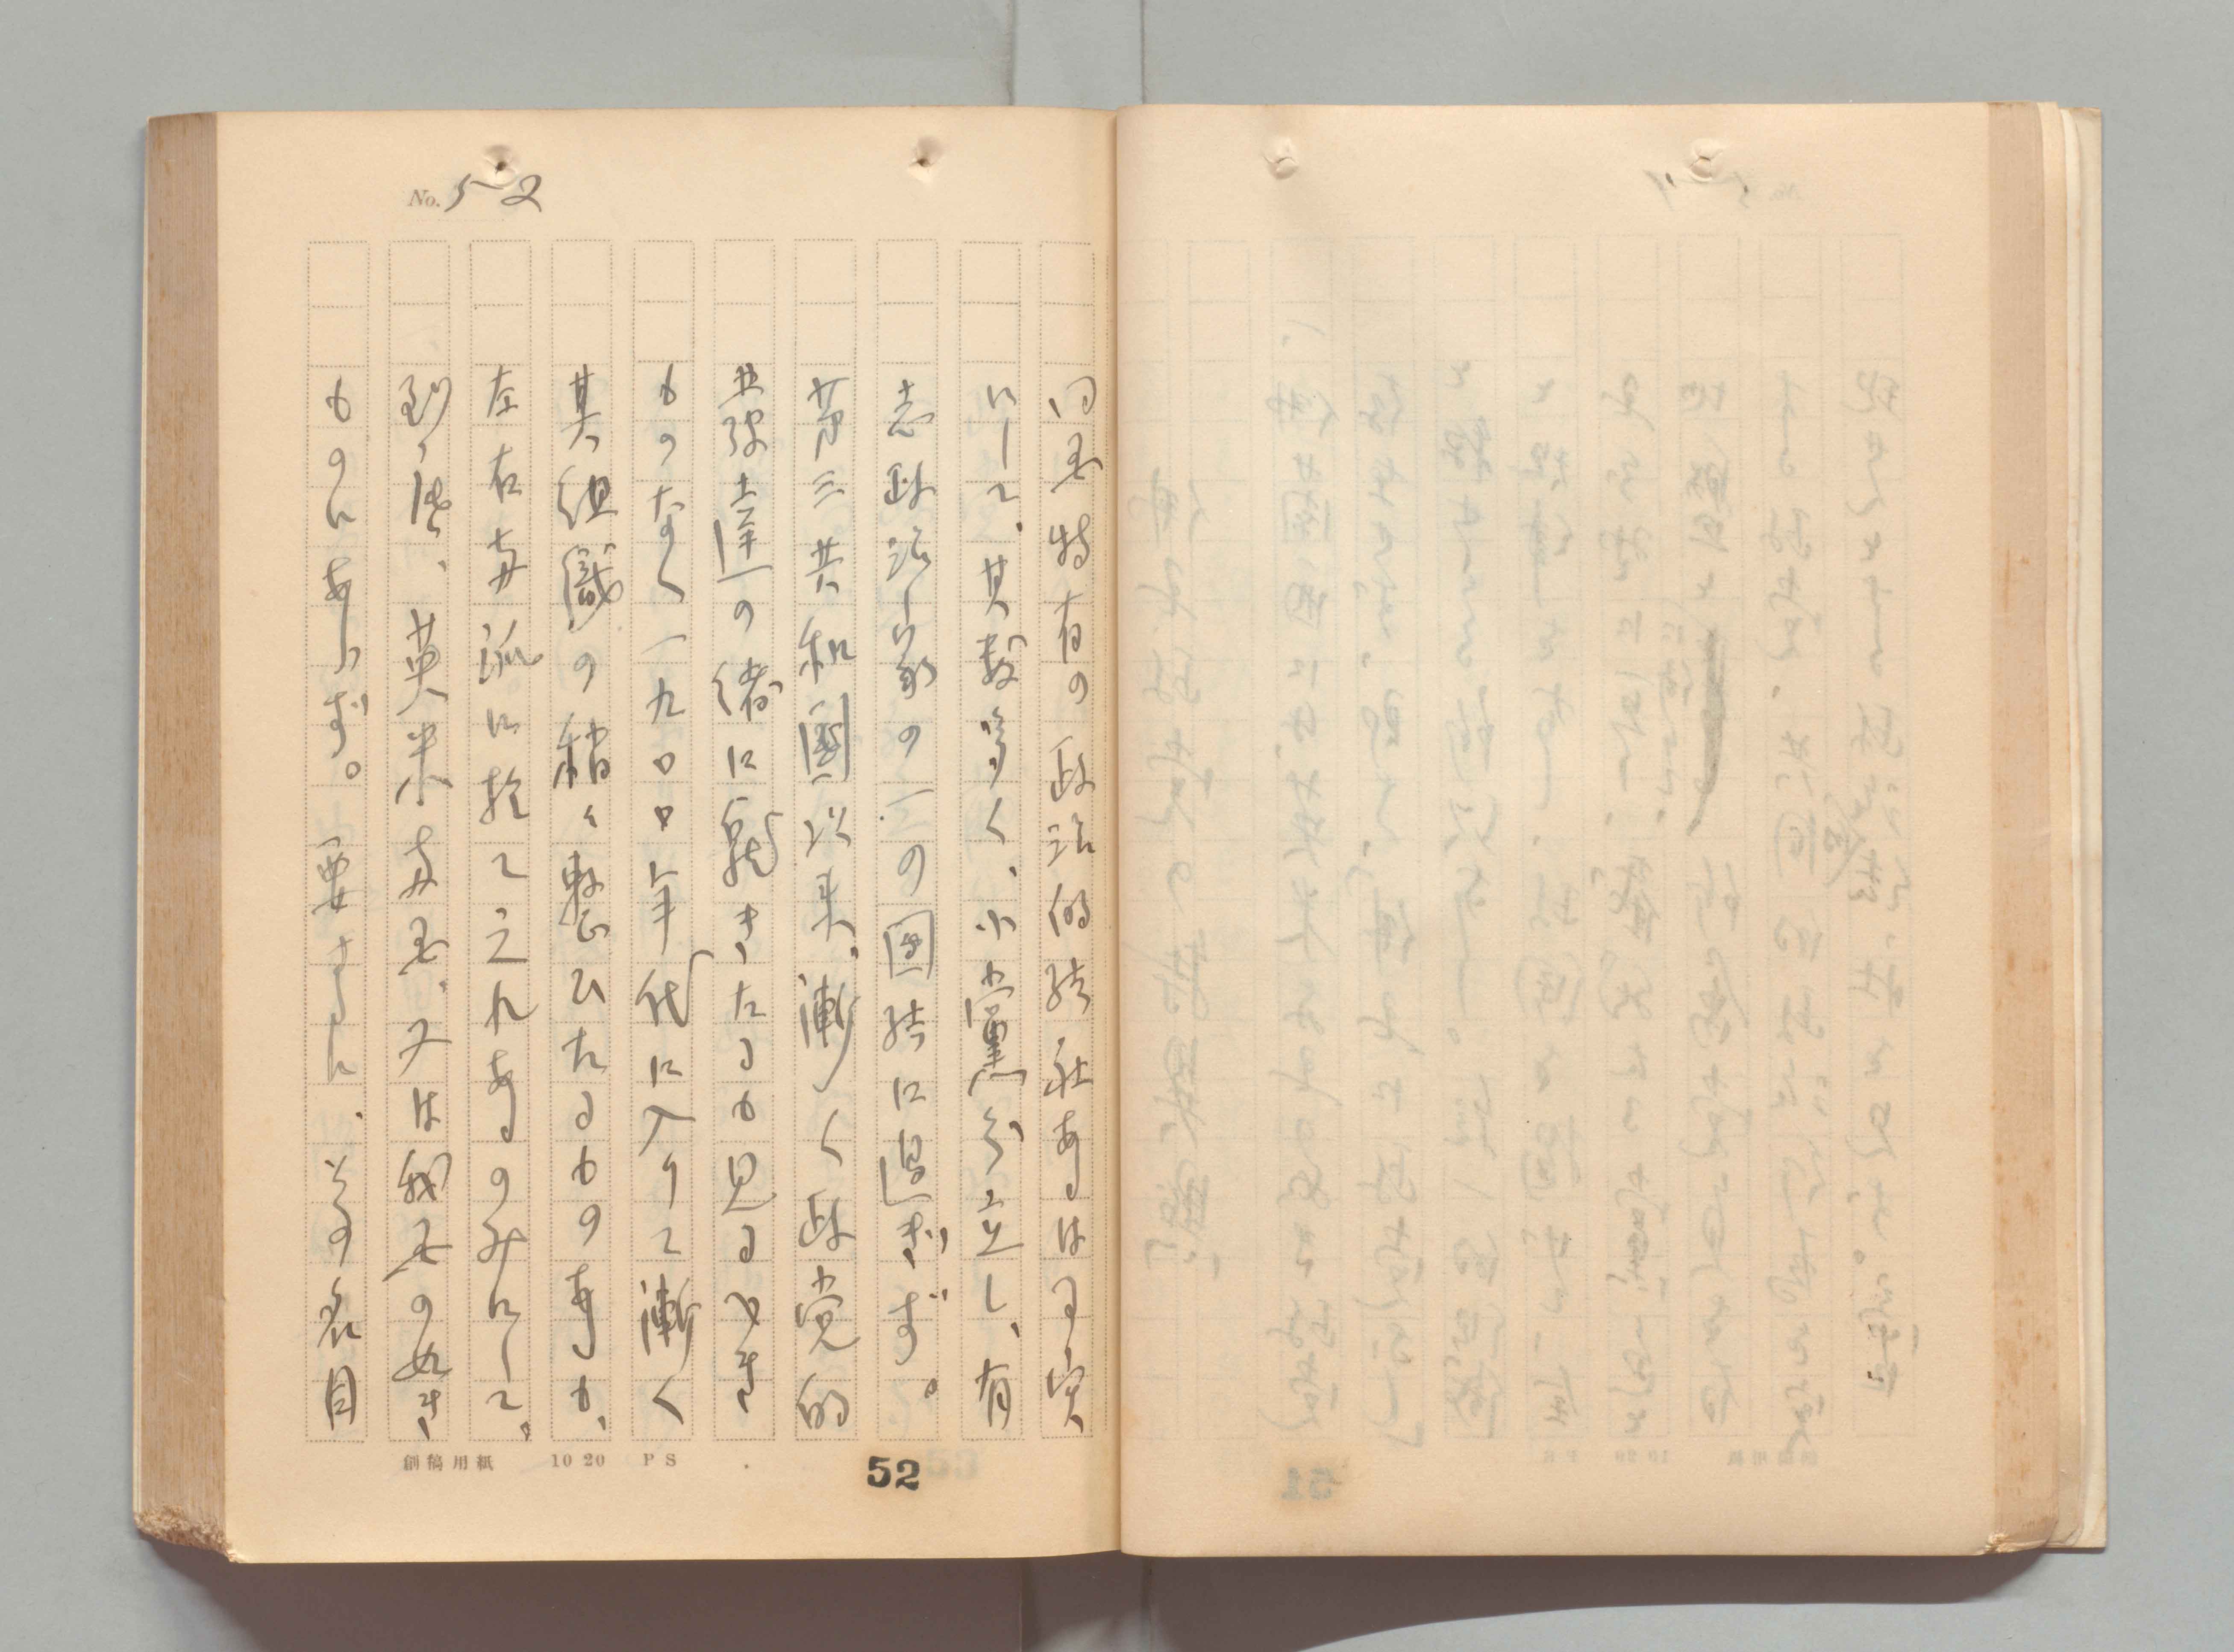 No. 5-2
同国特有の政治的結社あるは事実
にして、其数多く、小黨分立し、有
志政治家の一の團結に過ぎず。
第三共和國以来、漸く政党的
達の緒に就きたるも見るべき
ものなく一九〇〇年代に入りて漸く
其組織の稍々整ひたるもの事も、
左右両派に於て之れあるのみにして、
到底、英米両国、又は我国の如き
ものにあらず。要するに、その名目
創稿用紙 10 20 PS
52